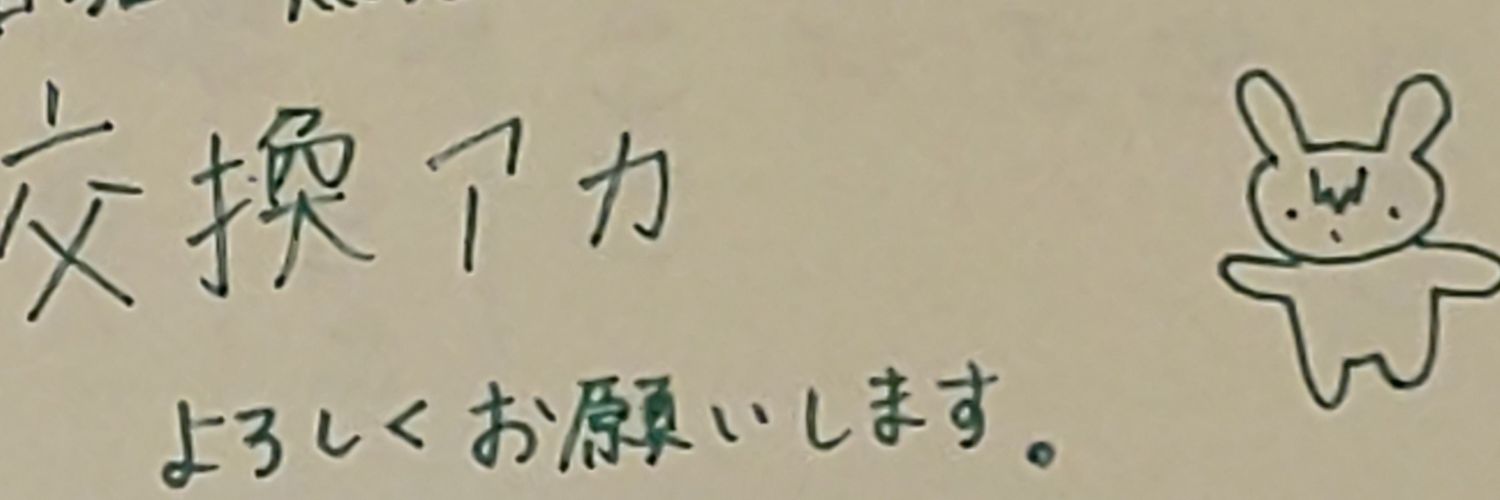 交換アカ
よろしくお願いします。